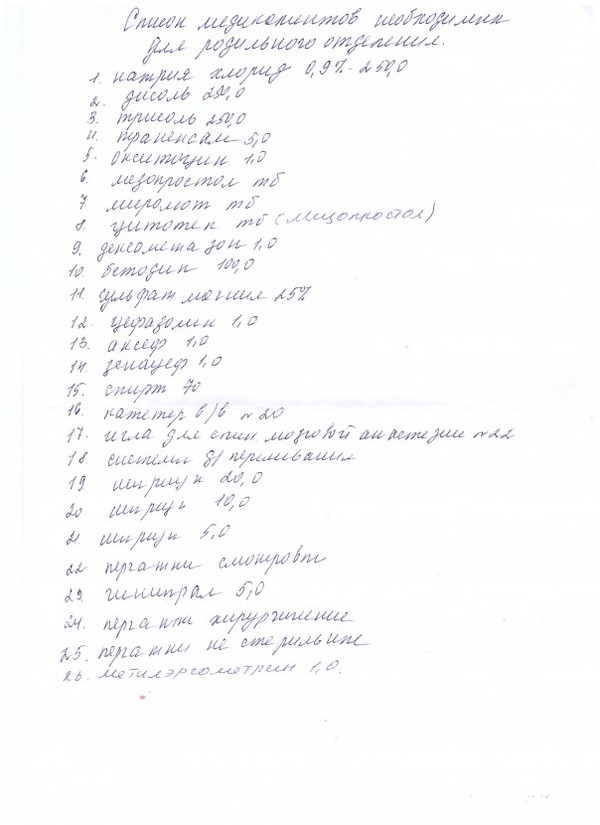 Список медикаментов необходимых
для родильного отделения.
1. натрия хлорид 0,9% - 250,0
2. дисоль 250,0
3. трисоль 250,0
4. транексам 5,0
5. окситоцин 1,0
6. мезопростол тб
7. миромот тб
8. цитотек тб (мизопростол)
9. дексометазон 1,0
10. бетодин 100,0
11. сульфат магния 25%
12. цефазолин 1,0
13. аксеф 1,0
14. зенацеф 1,0
15. спирт 70
16. катетер в/в №20
17. игла для спин мозговой анастезии №22
18. системы д/переливания
19 шприцы 20,0
20 шприцы 10,0
21. шприцы 5,0
22 перчатки смотровые
23. гинипрал 5,0
24. перчатки хирургичение
25. перчатки не стерильные
26. метилэргометрин 1,0.